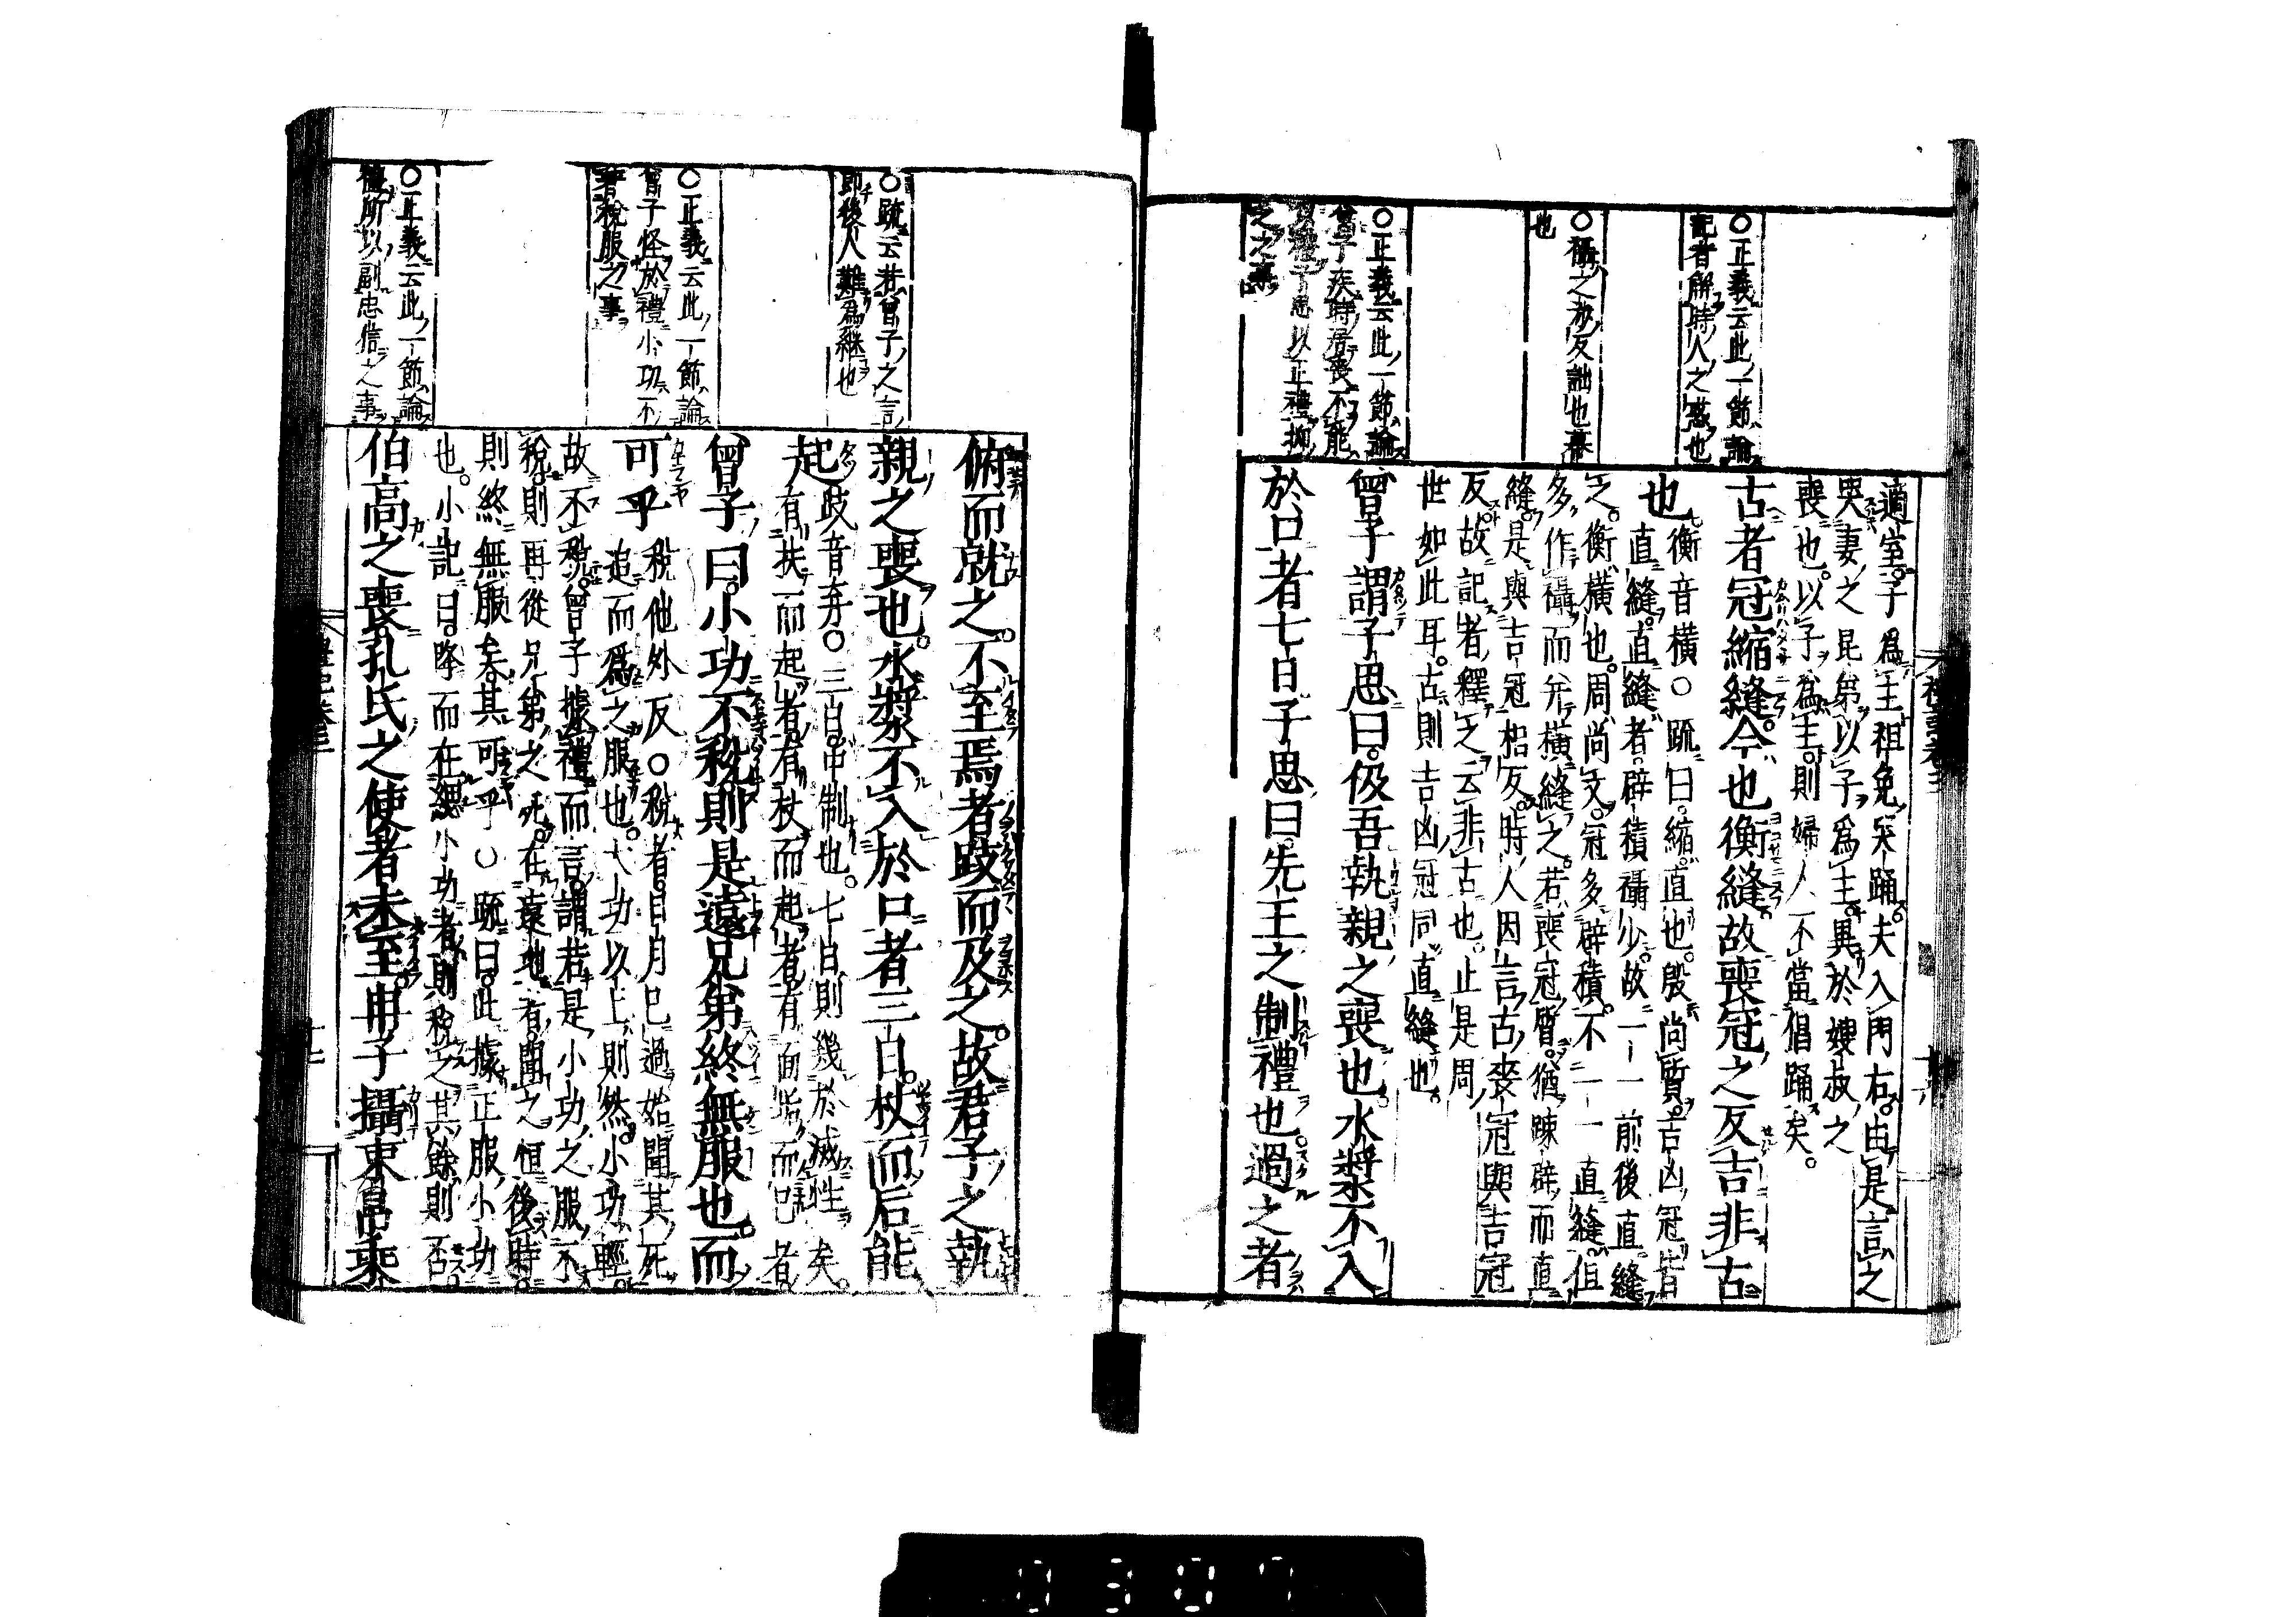 ○正義云此一節論
記者解時人之惑也
○襵之涉反詘也襞
也
○正義云此一節論
曾子疾時居喪不能
以禮子思以正禮抑
之之事
適室子爲主袒免哭踊夫入門右由是言之
哭妻之昆弟以子爲主異於嫂叔之
喪也以子爲主則婦人不當倡踊矣
古者冠縮縫今也衡縫故喪冠之反吉非古
也
衡音橫○疏曰縮直也殷尚質吉凶冠皆
直縫直縫者辟積襵少故一一前後直縫
之衡橫也周尚文冠多辟積不一一直縫但
多作襵而并橫縫之若喪冠質猶疎辟而直
縫是與吉冠相反時人因言古喪冠與吉冠
反故記者釋之云非古也止是周
世如此耳古則吉凶冠同直縫也
曾子謂子思曰伋吾執親之喪也水漿不入
於口者七日子思曰先王之制禮也過之者
○疏云若曾子之言
即後人難爲繼也
○正義云此一節論
曾子怪於禮小功不
著稅服之事
○正義云此一節論
禮所以副忠信之事
俯而就之不至焉者跂而及之故君子之執
親之喪也水漿不入於口者三日杖而后能
起
跂音弃○三日中制也七日則幾於滅性矣
有扶而起者有杖而起者有面垢而已者
曾子曰小功不稅則是遠兄弟終無服也而
可乎
稅他外反○稅者日月已過始聞其死
追而爲之服也大功以上則然小功輕
故不稅曾子據禮而言謂若是小功之服不
稅則再從兄弟之死在遠地者聞之恒後時
則終無服矣其可乎○疏曰此據正服小功
也小記曰降而在緦小功者則稅之其餘則否
伯高之喪孔氏之使者未至冉子攝束帛乘